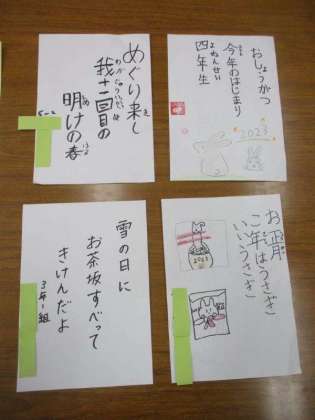 おしょうがつ
今年のはじまり
四年生
よねんせい
2023
めぐり来し
我十二回目の
明けの春
お正月
こ年はうさぎ
いいうさぎ
2023
雪の日に
お茶坂すべって
きけんだよ
3年1組